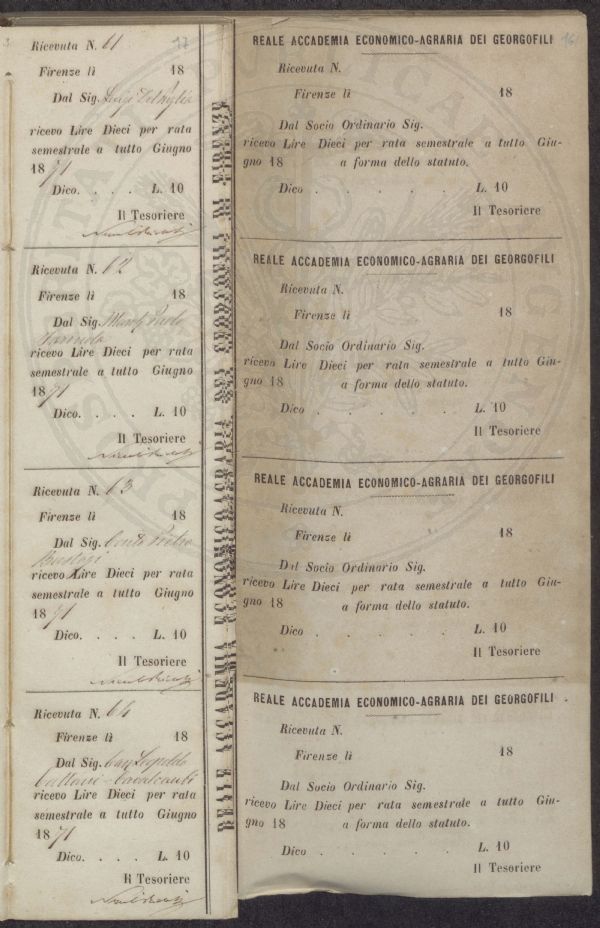 Ricevuta N. 61
17
Firenze lì 18
Dal Sig. Luigi
ricevo Lire Dieci per rata
semestrale a tutto Giugno
1871
Dico. . . . L. 10
Il Tesoriere
Ricevuta N. 62
Firenze lì 18
Dal Sig. Paolo
ricevo Lire Dieci per rata
semestrale a tutto Giugno
1871
Dico. . . . L. 10
Il Tesoriere
Ricevuta N. 63
Firenze lì 18
Dal Sig. Conte Pietro
Bastogi
ricevo Lire Dieci per rata
semestrale a tutto Giugno
1871
Dico. . . . L. 10
Il Tesoriere
Ricevuta N. 64
Firenze lì 18
Dal Sig. Cav. Leopoldo
Cattani-Cavalcanti
ricevo Lire Dieci per rata
semestrale a tutto Giugno
1871
Dico. . . . L. 10
Il Tesoriere
REALE ACCADEMIA ECONOMICO-AGRARIA DEI GEORGOFILI DI FIRENZE
REALE ACCADEMIA ECONOMICO-AGRARIA DEI GEORGOFILI
16
Ricevuta N.
Firenze lì 18
Dal Socio Ordinario Sig.
ricevo Lire Dieci per rata semestrale a tutto Giu-
gno 18 a forma dello statuto.
Dico . . . . . L. 10
Il Tesoriere
REALE ACCADEMIA ECONOMICO-AGRARIA DEI GEORGOFILI
Ricevuta N.
Firenze lì 18
Dal Socio Ordinario Sig.
ricevo Lire Dieci per rata semestrale a tutto Giu-
gno 18 a forma dello statuto.
Dico . . . . . L. 10
Il Tesoriere
REALE ACCADEMIA ECONOMICO-AGRARIA DEI GEORGOFILI
Ricevuta N.
Firenze lì 18
Dal Socio Ordinario Sig.
ricevo Lire Dieci per rata semestrale a tutto Giu-
gno 18 a forma dello statuto.
Dico . . . . . L. 10
Il Tesoriere
REALE ACCADEMIA ECONOMICO-AGRARIA DEI GEORGOFILI
Ricevuta N.
Firenze lì 18
Dal Socio Ordinario Sig.
ricevo Lire Dieci per rata semestrale a tutto Giu-
gno 18 a forma dello statuto.
Dico . . . . . L. 10
Il Tesoriere